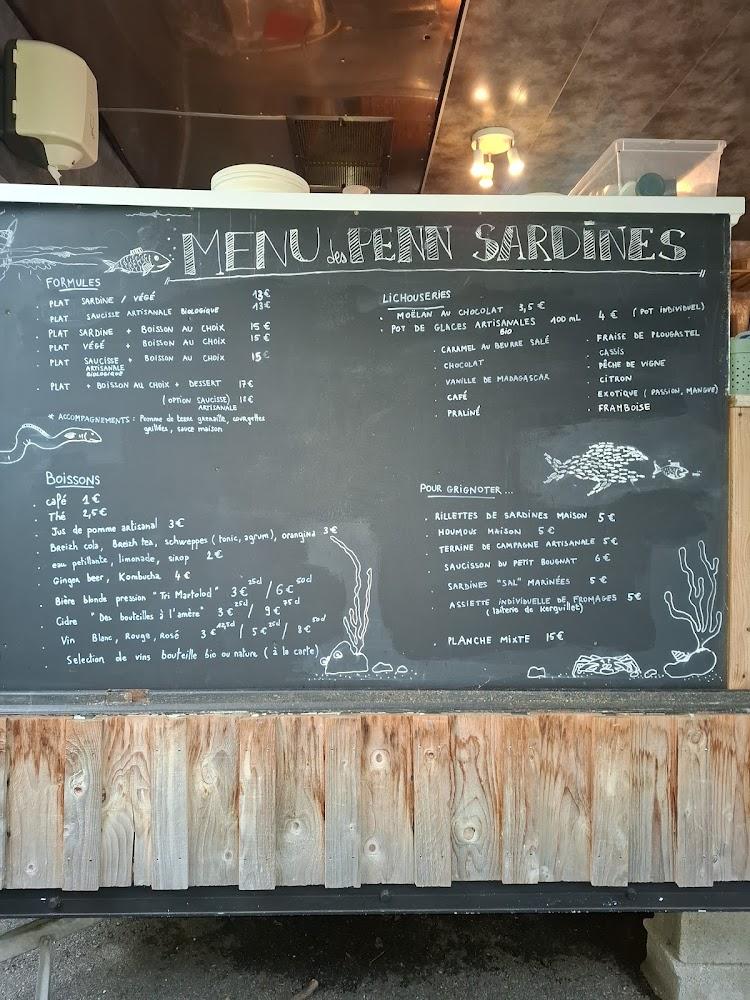 MENU des PENN SARDINES
FORMULES
. PLAT SARDINE / VÉGÉ 13€
. PLAT SAUCISSE ARTISANALE BIOLOGIQUE 13€
. PLAT SARDINE + BOISSON AU CHOIX 15€
. PLAT VÉGÉ + BOISSON AU CHOIX 15€
. PLAT SAUCISSE + BOISSON AU CHOIX 15€
ARTISANALE
BIOLOGIQUE
. PLAT + BOISSON AU CHOIX + DESSERT 17€
(OPTION SAUCISSE) 18€
ARTISANALE
* ACCOMPAGNEMENTS : Pomme de terre grenaille, courgettes
grillées, sauce maison
BOISSONS
. café 1€
. Thé 2,5€
. Jus de pomme artisanal 3€
. Breizh cola, Breizh tea, schweppes (tonic, agrum), orangina 3€
. eau petillante, limonade, sirop 2€
. Ginger beer, Kombucha 4€
. Bière blonde pression "Tri Martolod" 3€ 25cl / 6€ 50cl
. Cidre "Des bouteilles à l'amère" 3€ 25cl / 9€ 75cl
. Vin Blanc, Rouge, Rosé 3€ 12,5cl / 5€ 25cl / 8€ 50cl
. Selection de vins bouteille bio ou nature (à la carte)
LICHOUSERIES
. MOËLAN AU CHOCOLAT 3,5€
. POT DE GLACES ARTISANALES 100 mL 4€ (POT INDIVIDUEL)
BIO
. CARAMEL AU BEURRE SALÉ
. CHOCOLAT
. VANILLE DE MADAGASCAR
. CAFÉ
. PRALINÉ
. FRAISE DE PLOUGASTEL
. CASSIS
. PÊCHE DE VIGNE
. CITRON
. EXOTIQUE (PASSION, MANGUE)
. FRAMBOISE
POUR GRIGNOTER ...
. RILLETTES DE SARDINES MAISON 5€
. HOUMOUS MAISON 5€
. TERRINE DE CAMPAGNE ARTISANALE 5€
. SAUCISSON DU PETIT BOUGNAT 6€
. SARDINES "SAL" MARINÉES 5€
. ASSIETTE INDIVIDUELLE DE FROMAGES 5€
(laiterie de Kerguillet)
. PLANCHE MIXTE 15€